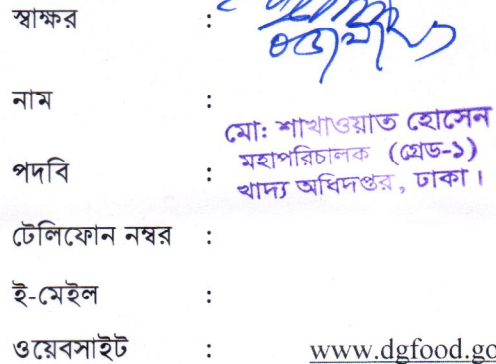 স্বাক্ষর :
নাম :
মো: শাখাওয়াত হোসেন
মহাপরিচালক (গ্রেড-১)
পদবি :
খাদ্য অধিদপ্তর, ঢাকা।
টেলিফোন নম্বর :
ই-মেইল :
ওয়েবসাইট : www.dgfood.go